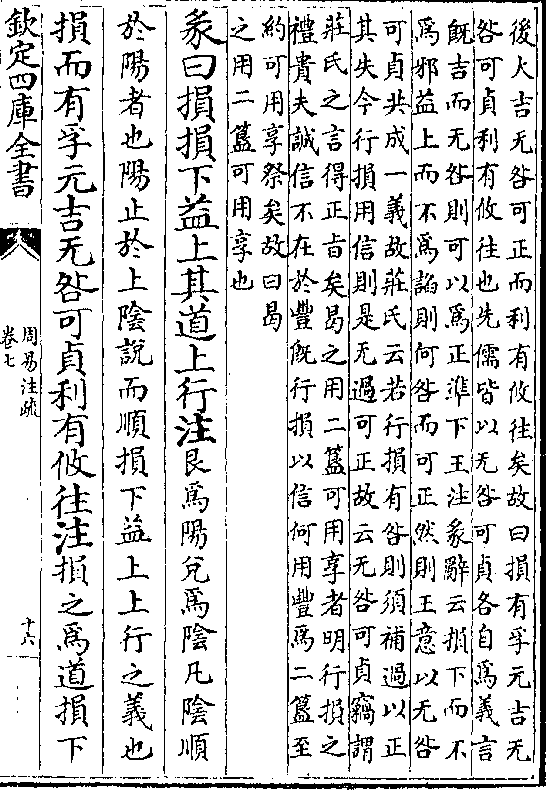 後大吉无咎可正而利有攸往矣故曰損有孚元吉无
咎可貞利有攸往也先儒皆以无咎可貞各自為義言
既吉而无咎則可以為正準下王注彖辭云損下而不
為邪益上而不為諂則何咎而可正然則王意以无咎
可貞共成一義故莊氏云若行損有咎則須補過以正
其失今行損用信則是无過可正故云无咎可貞竊謂
莊氏之言得正旨矣曷之用二簋可用享者明行損之
禮貴夫誠信不在於豐既行損以信何用豐為二簋至
約可用享祭矣故曰曷
之用二簋可用享也
彖曰損損下益上其道上行注艮為陽兌為陰凡陰順
於陽者也陽止於上陰說而順損下益上上行之義也
損而有孚元吉无咎可貞利有攸往注損之為道損下
欽定四庫全書
周易注疏
卷七
十六